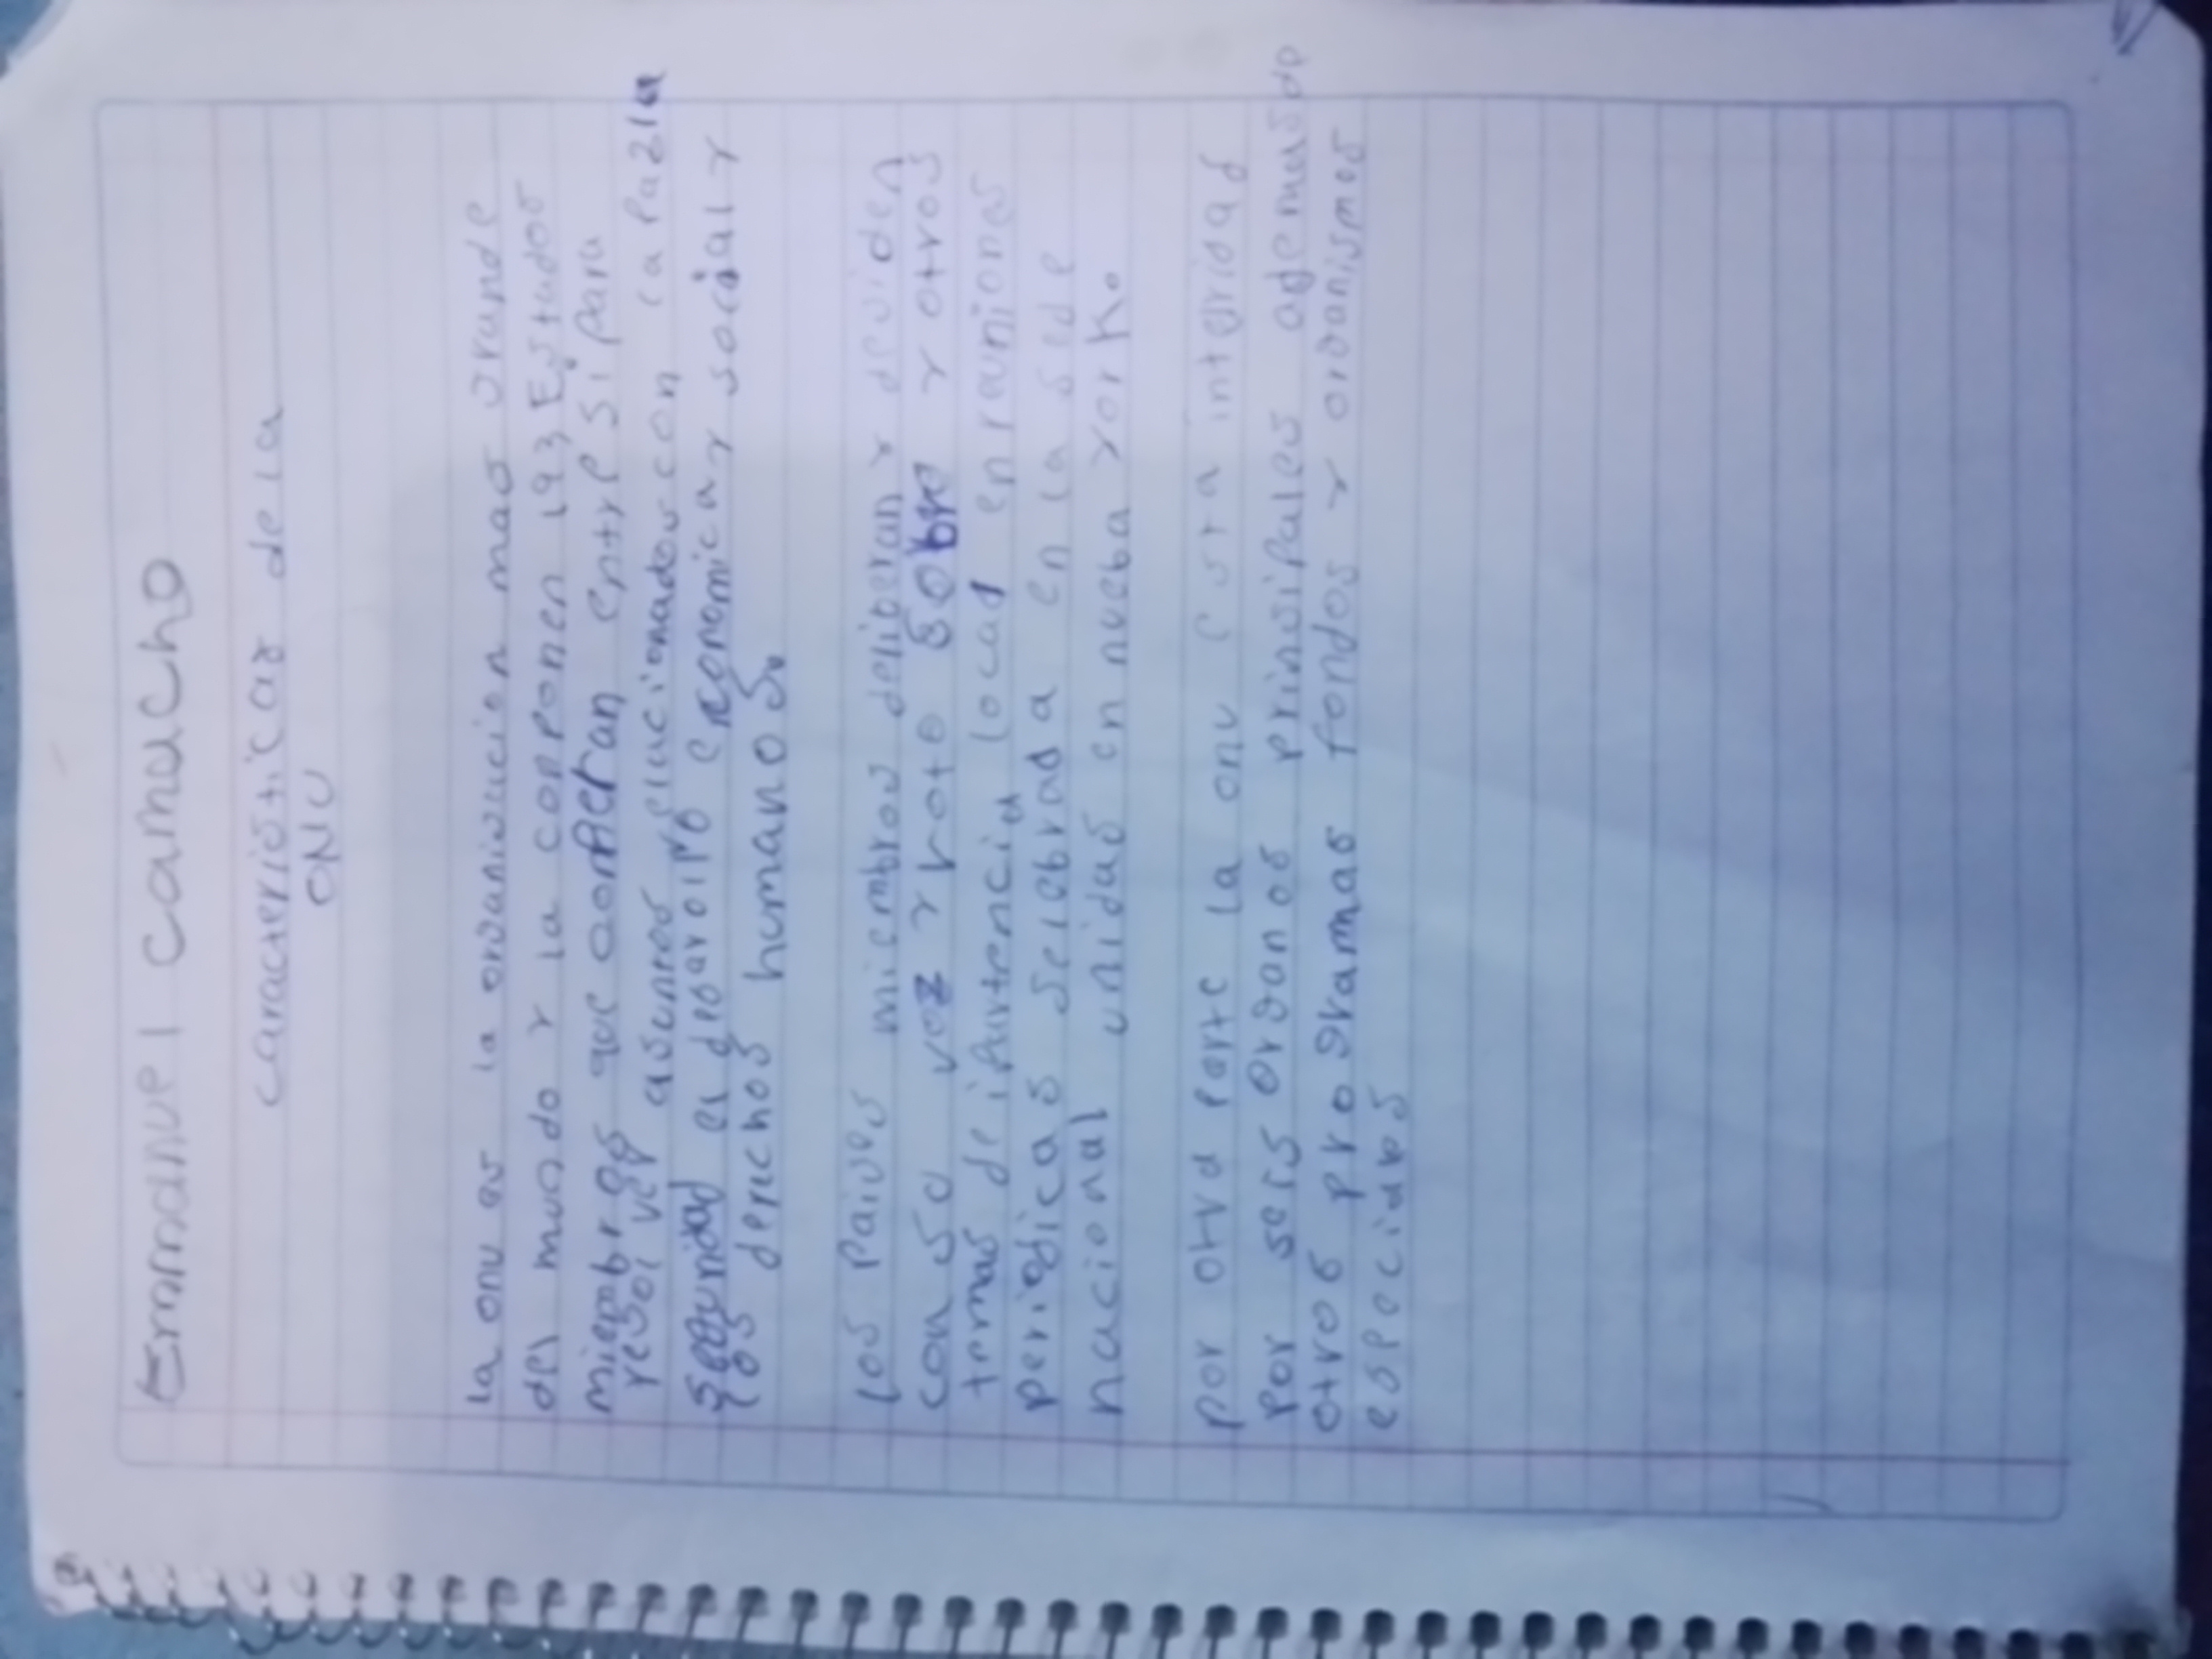 Emmanuel camacho
caracteristicas de la
ONU
la onu es la organisacion mas grande
del mundo y la componen 193 Estados
miembros que cooperan entre si para
resolver asuntos relacionados con la paz la
seguridad el desarollo economica y social y
los derechos humanos.
los paises miembros deliberan y desiden
con su voz y voto sobre y otros
temas de ipartencia locad en reuniones
periodicas selebrada en la sede
nacional unidas en nueba york.
por otra parte la onu esta integrad
por seis organos prinsipales ademas de
otros programas fondos y organismos